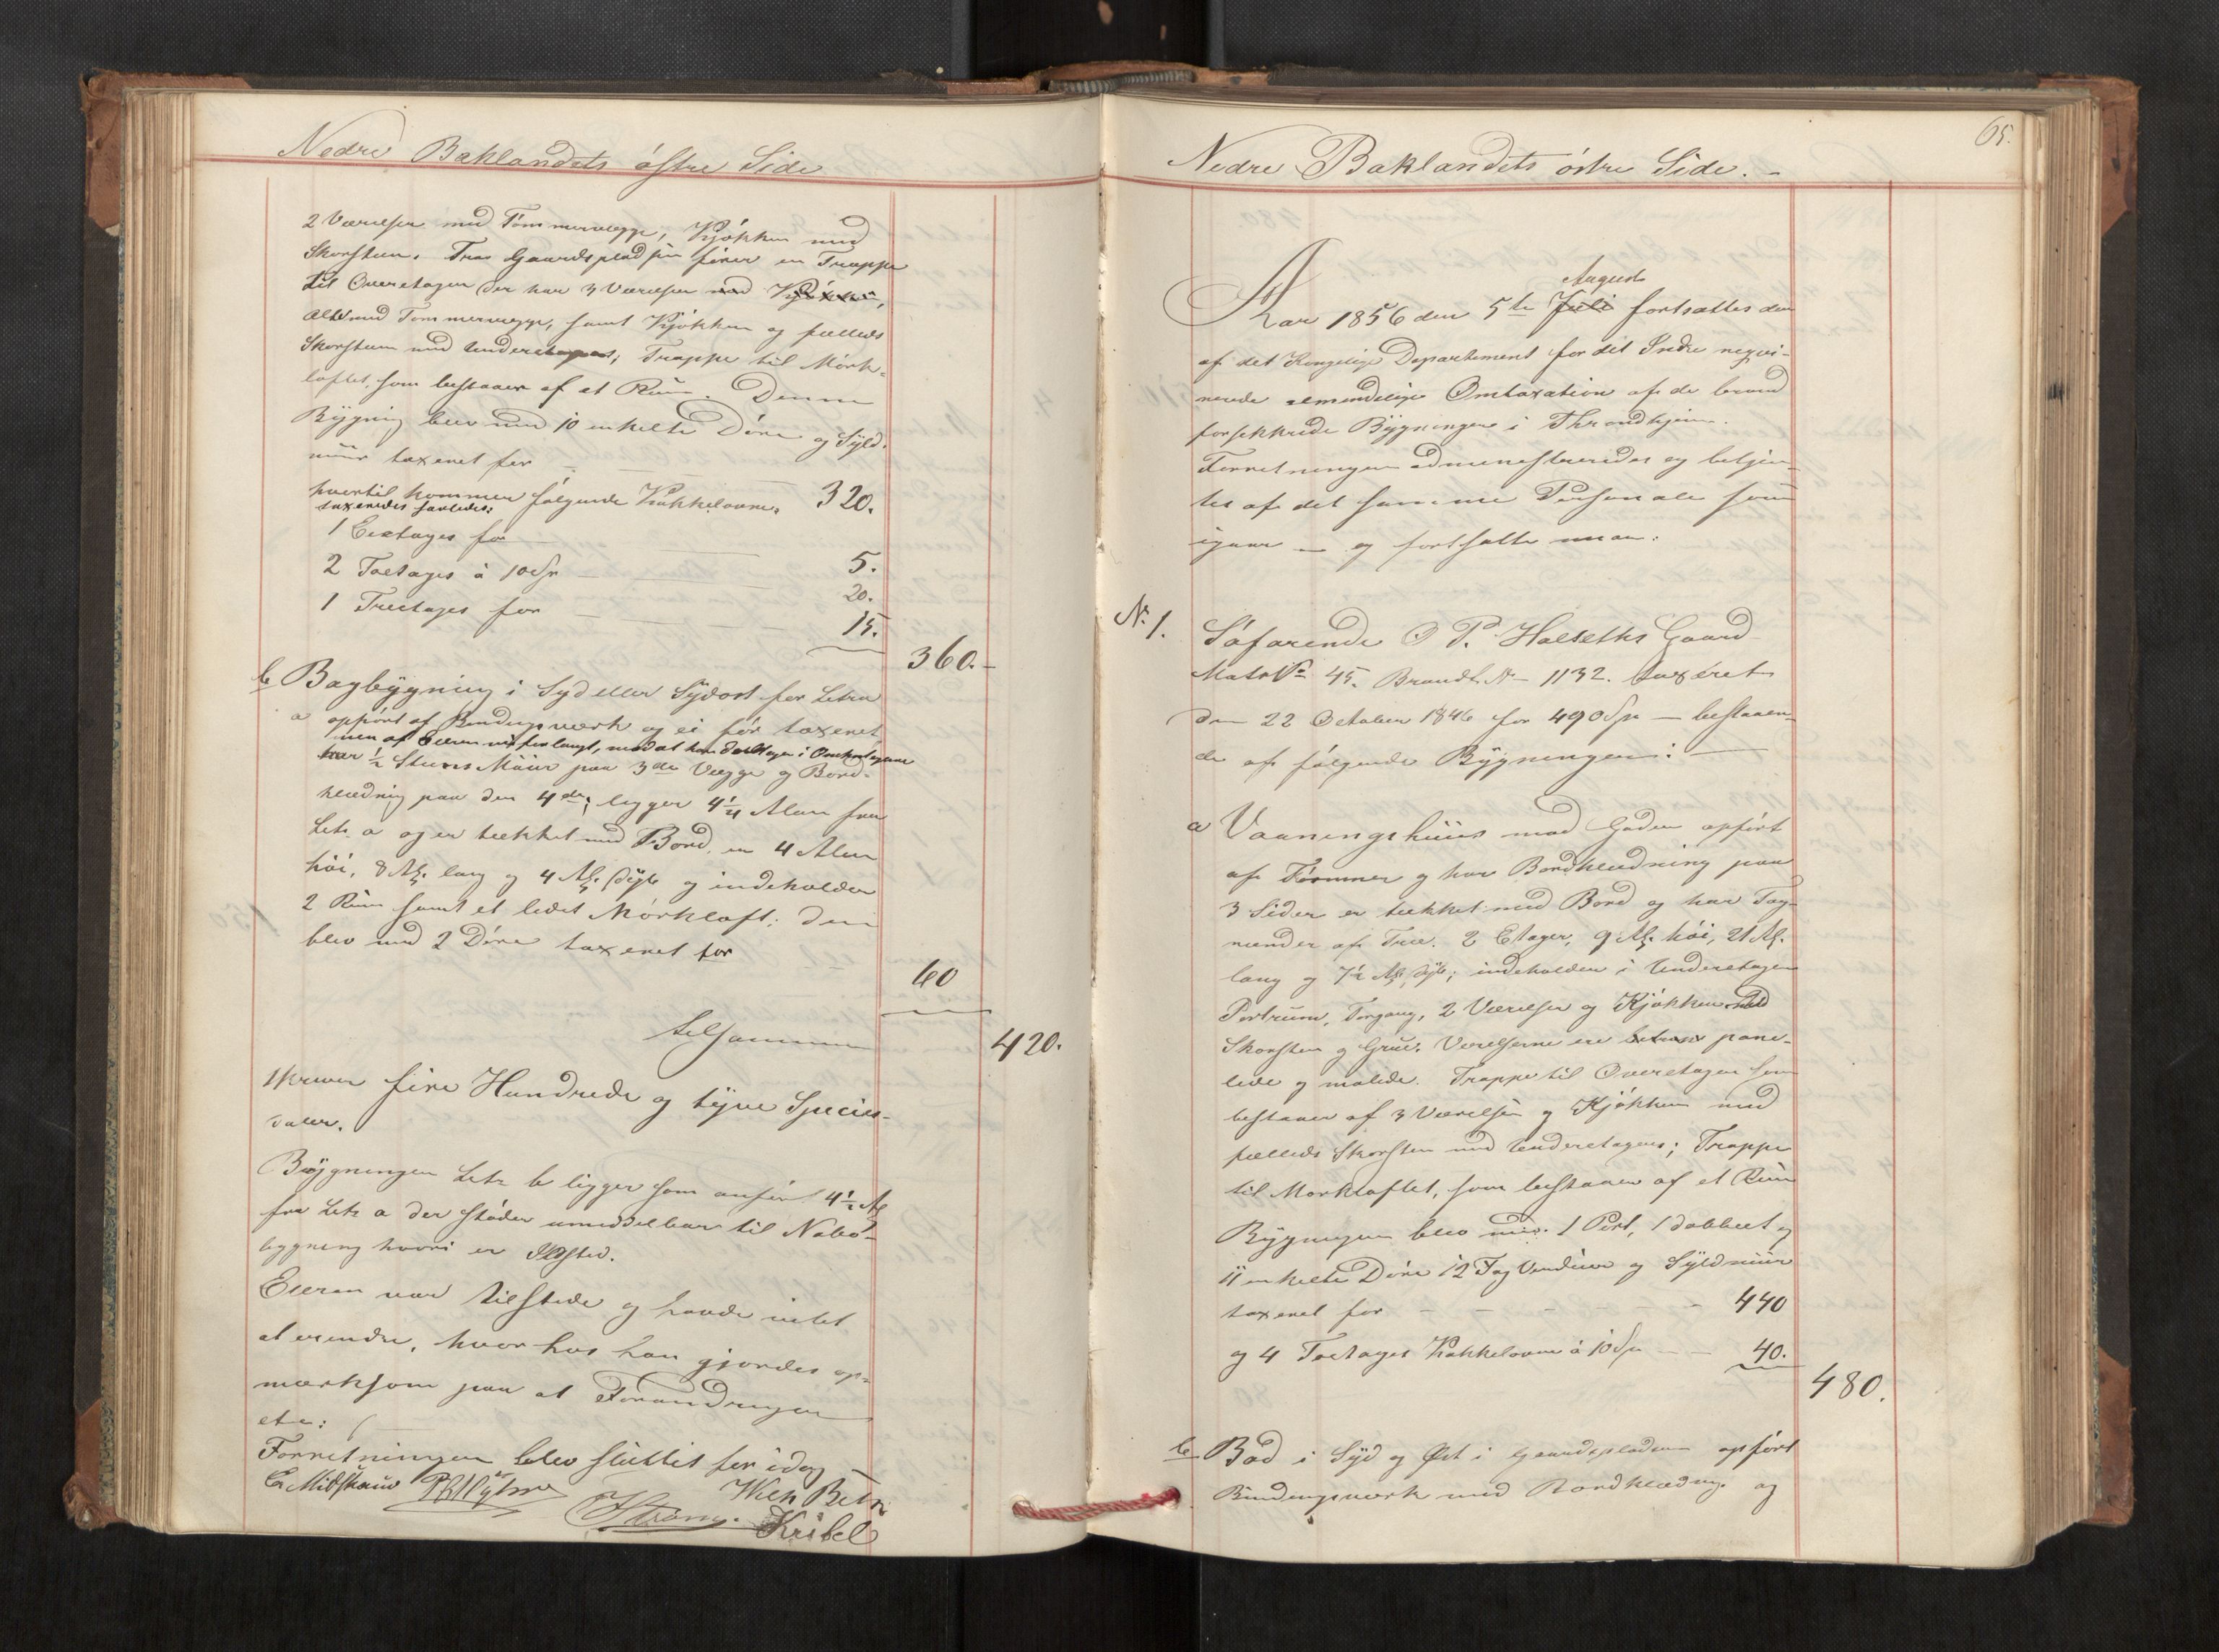 Nedre Baklandets östre Side
2 Værelser med Tömmervægge, Kjökken med
Skorsteen. Fra Gaardspladsen förer en Trappe
til Overetagen der har 3 Værelser med Kjökken,
alle med Tömmervægge, samt Kjökken og fælleds
Skorsteen med Underetagens, Trappe til Mörk-
loftet, som bestaaer af et Rum. Denne
Bygning blev med 10 enkelte Döre og Syld-
muur taxeret for 320.
hvortil kommer fölgende Kakkelovne,
taxeredes saaledes:
1 Eetages for 5.
2 Toetages à 10 Spr 20.
1 Treetages for 15.
360.-
b Bagbygning i Syd eller Sydost for Litra
a opfört af Bindingsværk og ei för taxeret
men af Eieren nu forlangt, med at han deeltager i Omkostningerne
har ½ Steens Muur paa 3de Vægge og Bord-
klædning paa den 4de; ligger 4½ Alen fra
Litr. a og er tækket med Bord, er 4 Alen
höi, 8 Al. lang og 4 Al. dyb og indeholder
2 Rum samt et lidet Mörkloft; den
blev med 2 Döre taxeret for
60
tilsammen
420.
skriver fire Hundrede og tyve Species-
daler.
Bygningen Litr b ligger som anfört 4½ Al
fra Litr a der stöder umiddelbar til Nabo-
bygning hvori er Ildsted.
Eieren var tilstede og havde intet
at erindre, hvorhos han gjordes op-
mærksom paa at Forandringen
etc:
Forretningen blev sluttet for idag
C. Midthaug
Ström. Kribel
65.
Nedre Baklandets östre Side. -
August
Aar 1856 den 5te Juli fortsattes den
af det Kongelige Departement for det Indre reqvi-
rerede almindelige Omtaxation af de brand
forsikkrede Bygninger i Throndhjem.
Forretningen administreredes og betjen-
tes af det samme Personale som
igaar - og fortsatte man:
No 1. Söfarende O P. Halseths Gaard
Matr No 45. Brandk. No 1132. taxeret
den 22 October 1846 for 490 Spr - bestaaen-
de af fölgende Bygninger:
a Vaaningshuus mod Gaden opfört
af Tömmer og har Bordklædning paa
3 Sider er tækket med Bord og har Tag-
render af Træ. 2 Etager, 9 Al. höi, 21 Al.
lang og 7½ Al. dyb; indeholder i Underetagen
Portrum, Forgang, 2 Værelser og Kjökken med
Skorsten og Grue. Værelserne ere betrukne pane-
lede og malede. Trappe til Overetagen som
bestaaer af 3 Værelser og Kjökken med
fælleds Skorsten med Underetagens; Trappe
til Mörkloftet, som bestaaer af et Rum
Bygningen blev med 1 Port, 1 dobbelt og
11 enkelte Döre 12 Fag Vinduer og Syldmuur
taxeret for 440
og 4 Toetages Kakkelovne à 10 Spr - - 40.
480.
b Bod i Syd og Öst i Gaardspladsen opfört
Bindingsværk med Bordklædning og